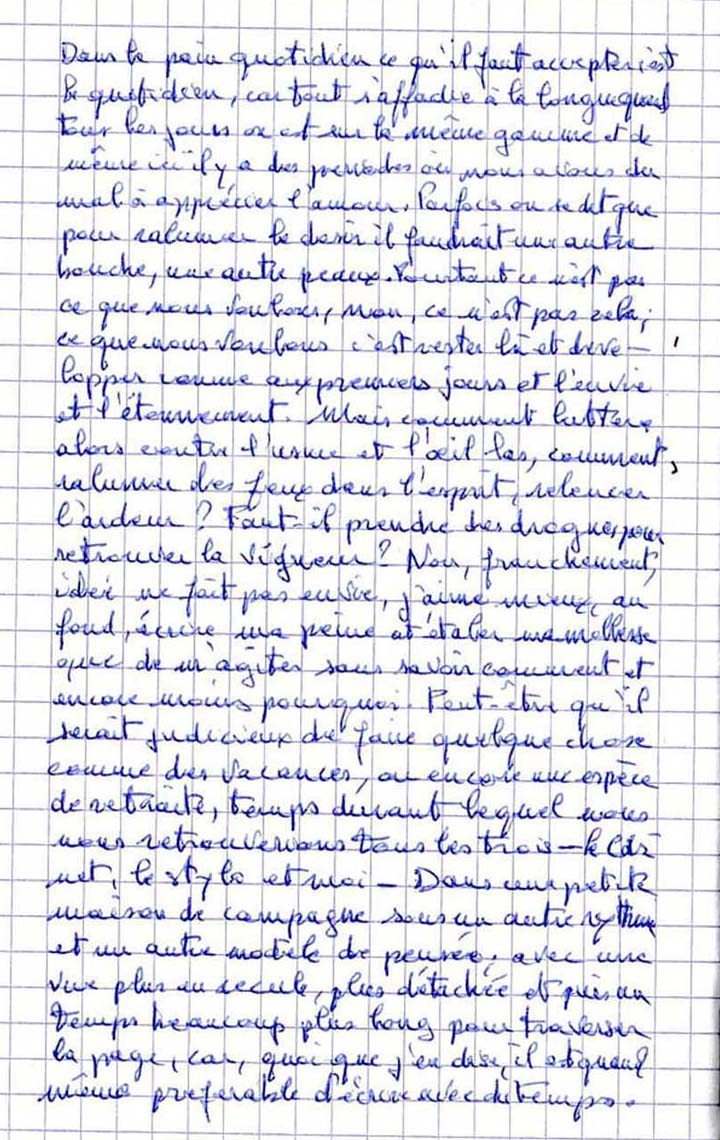 Dans le pain quotidien ce qu'il faut accepter c'est
le quotidien, car tout s'affadie à la longue quand
tous les jours on est sur la même gamme et de
même ici il y a des periodes où nous avons du
mal à apprécier l'amour. Parfois on se dit que
pour ralumer le desir il faudrait une autre
bouche, une autre peau. Pourtant ce n'est pas
ce que nous voulons, non, ce n'est pas cela;
ce que nous voulons c'est rester là et déve-
lopper comme aux premiers jours et l'envie
et l'étonnement. Mais comment lutter,
alors contre l'usure et l'œil las, comment,
ralumer des feux dans l'esprit, relancer
l'ardeur ? Faut-il prendre des drogues pour
retrouver la vigueur ? Non, franchement,
l'idée ne fait pas envie, j'aime mieux, au
fond, écrire ma peine et étaler ma mollesse
que de m'agiter sans savoir comment et
encore moins pourquoi. Peut-être qu'il
serait judicieux de faire quelque chose
comme des vacances, ou encore une espèce
de retraite, temps durant lequel nous
nous retrouverions tous les trois – le car
net, le stylo et moi – Dans une petite
maison de campagne sous un autre rythme
et un autre modèle de pensée; avec une
vue plus en recule, plus détachée et puis un
temps beaucoup plus long pour traverser
la page, car, quoi que j'en dise, il est quand
même preferable d'écrire avec du temps.